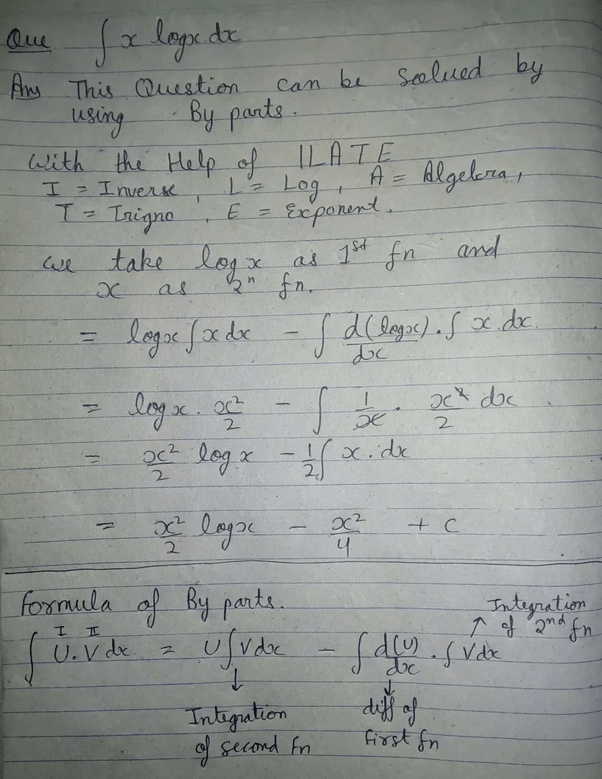 Que ∫ x logx dx
Ans This Question can be soolued by
using By parts.
With the Help of ILATE
I = Inverse, L = Log, A = Algebra,
T = Trigno, E = Exponent.
we take log x as 1st fn and
x as 2n fn.
= logx ∫ x dx - ∫ d(logx)/dx . ∫ x.dx
= log x . x²/2 - ∫ 1/x . x²/2 dx
= x²/2 log x - 1/2 ∫ x. dx
= x²/2 logx - x²/4 + c
Formula of By parts.
Integration
of 2nd fn
I II
∫ U.V dx = U ∫ V dx - ∫ d(U)/dx . ∫ V dx
Integration
of second fn
diff of
first fn